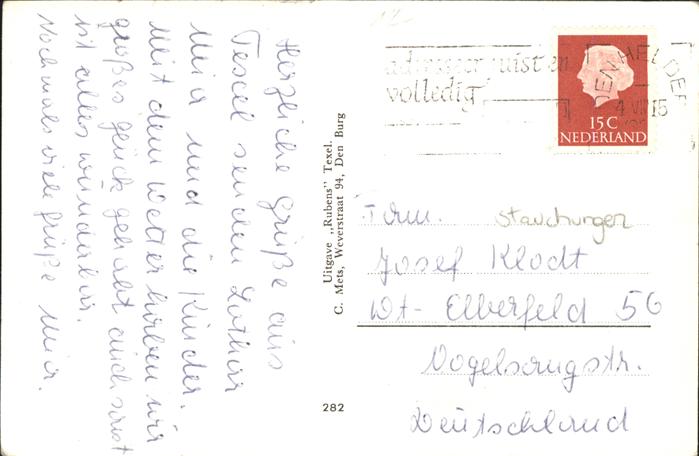 Herzliche Grüße aus
Texel senden Lothar
Mia und die Kinder.
Mit dem Wetter haben wir
großes glück gehabt auch sonst
ist alles wunderbar.
Nochmals viele Grüße Mia.
Uitgave „Rubens" Texel.
C. Mets, Weverstraat 94, Den Burg
282
adresseer juist en
volledig
DEN HELDER
15 C
NEDERLAND
Firm. Stauchungen
Josef Klodt
Wt- Elberfeld 56
Vogelsangstr.
Deutschland